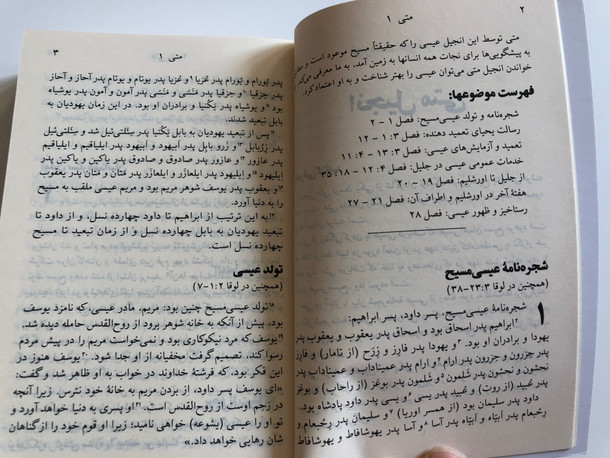 ۲
متی ۱
متی توسط این انجیل عیسی را که حقیقتاً مسیح موعود است و
به پیشگویی‌ها برای نجات همه انسانها به زمین آمد، به ما معرفی
خواندن انجیل متی می‌توان عیسی را بهتر شناخت و به او اعتماد کرد.
فهرست موضوعها:
شجره‌نامه و تولد عیسی‌مسیح: فصل ۱ – ۲
رسالت یحیای تعمید دهنده: فصل ۱:۳ – ۱۲
تعمید و آزمایش‌های عیسی: فصل ۱۳:۳ – ۱۱:۴
خدمات عمومی عیسی در جلیل: فصل ۱۲:۴ – ۳۵:۱۸
از جلیل تا اورشلیم: فصل ۱۹ – ۲۰
هفتهٔ آخر در اورشلیم و اطراف آن: فصل ۲۱ – ۲۷
رستاخیز و ظهور عیسی: فصل ۲۸
شجره‌نامهٔ عیسی‌مسیح
(همچنین در لوقا ۲۳:۳–۳۸)
۱ شجره‌نامهٔ عیسی‌مسیح، پسر داود، پسر ابراهیم:
۲ابراهیم پدر اسحاق بود و اسحاق پدر یعقوب و یعقوب پدر
یهودا و برادران او بود. ۳و یهودا پدر فارِز و زِرَح (از تامار) و فارِز
پدر حزرون و حزرون پدر ارام ۴و ارام پدر عمیناداب و عمیناداب پدر
نحشون و نحشون پدر شَلمون ۵و شلمون پدر بوعَز (از راحاب) و بوعَز
پدر عُبید (از روت) و عُبید پدر یسی ۶و یسی پدر داود پادشاه بود.
داود پدر سلیمان بود (از همسر اوریا) ۷و سلیمان پدر رِحُبعام و
رِحُبعام پدر اَبیّاه و اَبیّاه پدر آسا ۸و آسا پدر یهوشافاط و یهوشافاط
متی ۱
۳
پدر یُورام و یُورام پدر عُزیا ۹و عُزیا پدر یوتام و یوتام پدر آحاز و آحاز
پدر حِزقیا ۱۰و حِزقیا پدر مَنَسی و مَنَسی پدر آمون و آمون پدر یوشیاه
بود ۱۱و یوشیاه پدر یَکُنیا و برادران او بود. در این زمان یهودیان به
بابل تبعید شدند.
۱۲پس از تبعید یهودیان به بابل یَکُنیا پدر سئلتی‌ئیل شد و سئلتی‌ئیل
پدر زَرُبابل ۱۳و زَرُبابل پدر اَبیهود و اَبیهود پدر ایلیاقیم و ایلیاقیم
پدر عازور ۱۴و عازور پدر صادوق و صادوق پدر یاکین و یاکین پدر
ایلیهود ۱۵و ایلیهود پدر ایلعازَر و ایلعازَر پدر مَتان و مَتان پدر یعقوب
۱۶و یعقوب پدر یوسف شوهر مریم بود و مریم عیسی ملقب به مسیح
را به دنیا آورد.
۱۷به این ترتیب از ابراهیم تا داود چهارده نسل، و از داود تا
تبعید یهودیان به بابل چهارده نسل و از زمان تبعید تا مسیح
چهارده نسل است.
تولد عیسی
(همچنین در لوقا ۱:۲–۷)
۱۸تولد عیسی‌مسیح چنین بود: مریم، مادر عیسی، که نامزد یوسف
بود، پیش از آنکه به خانه شوهر برود از روح‌القدس حامله دیده شد.
۱۹یوسف که مرد نیکوکاری بود و نمی‌خواست مریم را در پیش مردم
رسوا کند، تصمیم گرفت مخفیانه از او جدا شود. ۲۰یوسف هنوز در
این فکر بود، که فرشتهٔ خداوند در خواب به او ظاهر شد و گفت:
«ای یوسف پسر داود، از بردن مریم به خانهٔ خود نترس. زیرا آنچه
در رَحِم اوست از روح‌القدس است. ۲۱او پسری به دنیا خواهد آورد و
تو او را عیسی (یشوعه) خواهی نامید؛ زیرا او قوم خود را از گناهان
شان رهایی خواهد داد.»